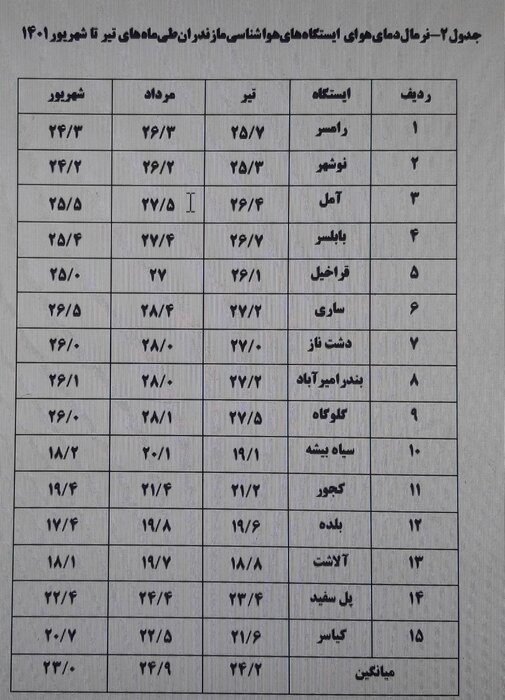 جدول۲-نرمال‌دمای‌هوای ایستگاه‌های‌هواشناسی‌مازندران‌طی‌ماه‌های تیر تا شهریور۱۴۰۱
ردیف ایستگاه تیر مرداد شهریور
۱ رامسر ۲۵/۷ ۲۶/۳ ۲۴/۳
۲ نوشهر ۲۵/۳ ۲۶/۲ ۲۴/۲
۳ آمل ۲۶/۴ ۲۷/۵ ۲۵/۵
۴ بابلسر ۲۶/۷ ۲۷/۴ ۲۵/۴
۵ قراخیل ۲۶/۱ ۲۷ ۲۵/۰
۶ ساری ۲۷/۲ ۲۸/۴ ۲۶/۵
۷ دشت ناز ۲۷/۰ ۲۸/۰ ۲۶/۰
۸ بندرامیرآباد ۲۷/۲ ۲۸/۰ ۲۶/۱
۹ گلوگاه ۲۷/۵ ۲۸/۱ ۲۶/۰
۱۰ سیاه بیشه ۱۹/۱ ۲۰/۱ ۱۸/۲
۱۱ کجور ۲۱/۲ ۲۱/۴ ۱۹/۴
۱۲ بلده ۱۹/۶ ۱۹/۸ ۱۷/۴
۱۳ آلاشت ۱۸/۸ ۱۹/۷ ۱۸/۱
۱۴ پل سفید ۲۳/۴ ۲۴/۴ ۲۲/۴
۱۵ کیاسر ۲۱/۶ ۲۲/۵ ۲۰/۷
میانگین ۲۴/۲ ۲۴/۹ ۲۳/۰